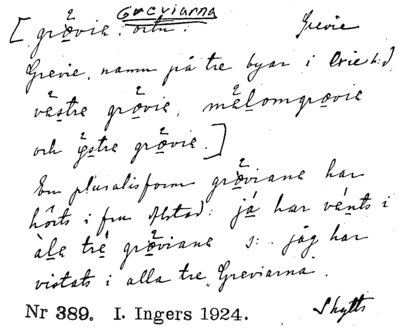 Greviarna
[grǿvie. ortn. Grevie
Grevie, namn på tre byar i Oxie hd.
västre grøvie, mälomgrøvie
och östre grøvie.]
En pluralisform grøviane har
hörts i fru Åstad: já har vánts i
àle tré grøviane ɔ: jåg har
vistats i alla tre Greviarna.
Nr 389. I. Ingers 1924. Skytts